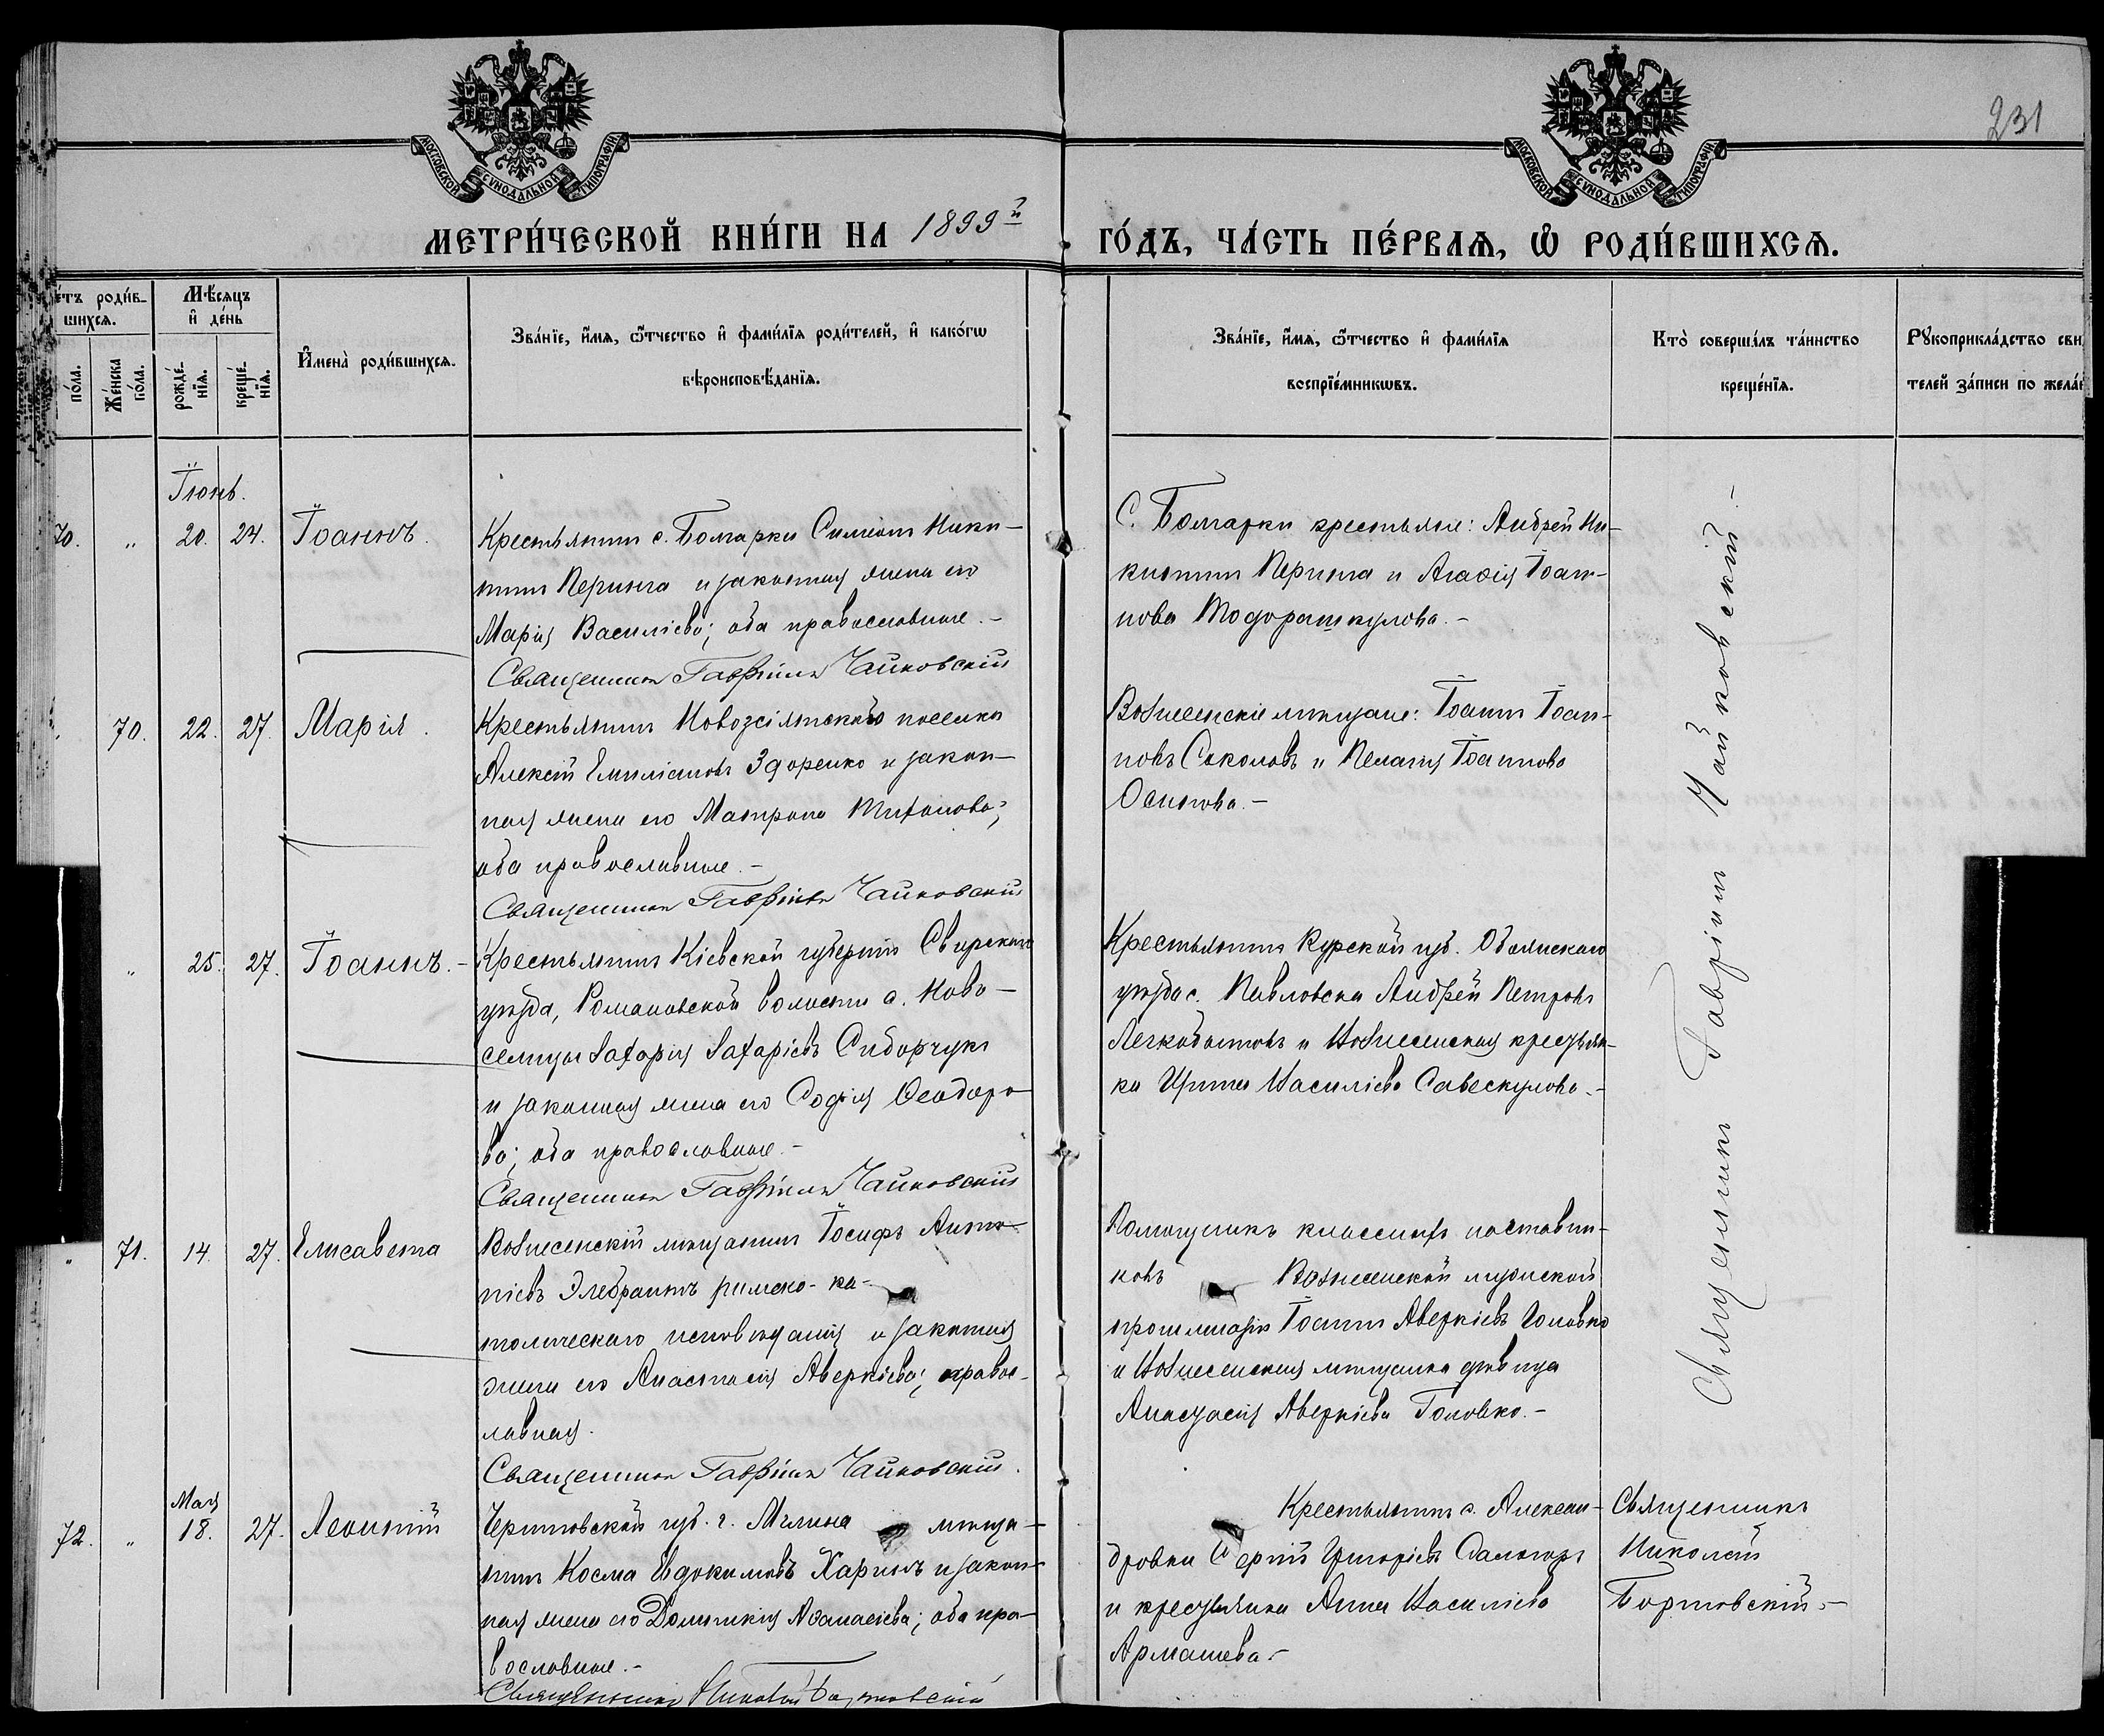 231
МОСКОВСКОЙ СѴНОДАЛЬНОЙ ТИПОГРАФІИ
МОСКОВСКОЙ СѴНОДАЛЬНОЙ ТИПОГРАФІИ
МЕТРИ́ЧЕСКОЙ КНИ́ГИ НА 1899й ГО́ДЪ, ЧА́СТЬ ПЕ́РВАѦ, Ѡ҆ РОДИ́ВШИХСѦ.
е́тъ роди́в-
шихсѧ.
по́ла.
Же́нска
по́ла.
Мѣ́сѧцъ
и҆ де́нь
рожде́-
нїѧ.
креще́-
нїѧ.
И҆мена̀ роди́вшихсѧ.
Зва́нїе, и҆́мѧ, ѻ҆́тчество и҆ фами́лїѧ роди́телей, и҆ како́гѡ
вѣроисповѣ́данїѧ.
Зва́нїе, и҆́мѧ, ѻ҆́тчество и҆ фами́лїѧ
воспрїе́мникѡвъ.
Кто̀ соверша́лъ та́инство
креще́нїѧ.
Рꙋкоприкла́дство сви
телей за́писи по жела́
Іюнь.
70. „ 20. 24. Іоаннъ.
Крестьянинъ с. Болгарки Симеонъ Ники-
тинъ Перинга и законная жена его
Марія Василіева; оба православные.-
Священникъ Гавріилъ Чайковскій
С. Болгарки крестьяне: Андрей Ни-
китинъ и Агафія Іоан-
нова Тодорашкулова.-
70. 22. 27. Марія.
Крестьянинъ поселка
Алексій Емиліановъ Здоренко и закон-
ная жена его Матрона Тихонова;
оба православные.-
Священникъ Гавріилъ Чайковскій
Вознесенскіе мѣщане: Іоаннъ Іоан-
новъ Соколовъ и Пелагія Іоаннова
Осипова.-
„ 25. 27. Іоаннъ.-
Крестьянинъ Кіевской губерніи Свирскаго
уѣзда, Романовской волости с. Ново-
селицы Захарія Захаріевъ Сидорчукъ
и законная жена его Софія Ѳеодоро-
ва; оба православные.-
Священникъ Гавріилъ Чайковскій
Крестьянинъ Курской губ. Обоянскаго
уѣзда с. Павловска Андрей Петровъ
Легкобытовъ и Вознесенская крестьян-
ка Ирина Василіева Савескулова.-
„ 71. 14. 27. Елисавета
Вознесенскій мѣщанинъ Іосифъ Анто-
ніевъ Элебрантъ римско-ка-
толическаго исповѣданія и законная
жена его Анастасія Аверкіева; правос-
лавная.
Священникъ Гавріилъ Чайковскій.
Помощникъ классныхъ наставни-
ковъ Вознесенской мужской
прогимназіи Іоаннъ Аверкіевъ Головко
и Вознесенская мѣщанка дѣвица
Анастасія Аверкіева Головко.-
Священникъ Гавріилъ Чайковскій-
Мая
72. „ 18. 27. Леонтій
Черниговской губ. г. Мглина мѣща-
нинъ Косма Евдокимовъ Харинъ и закон-
ная жена его Домникія Аѳанасіева; оба пра-
вославные.-
Священникъ Николай Бортковскій
Крестьянинъ с. Алексан-
дровки Сергій Григоріевъ
и крестьянка Анна Василіева
Армашева.-
Священникъ
Николай
Бортковскій.-